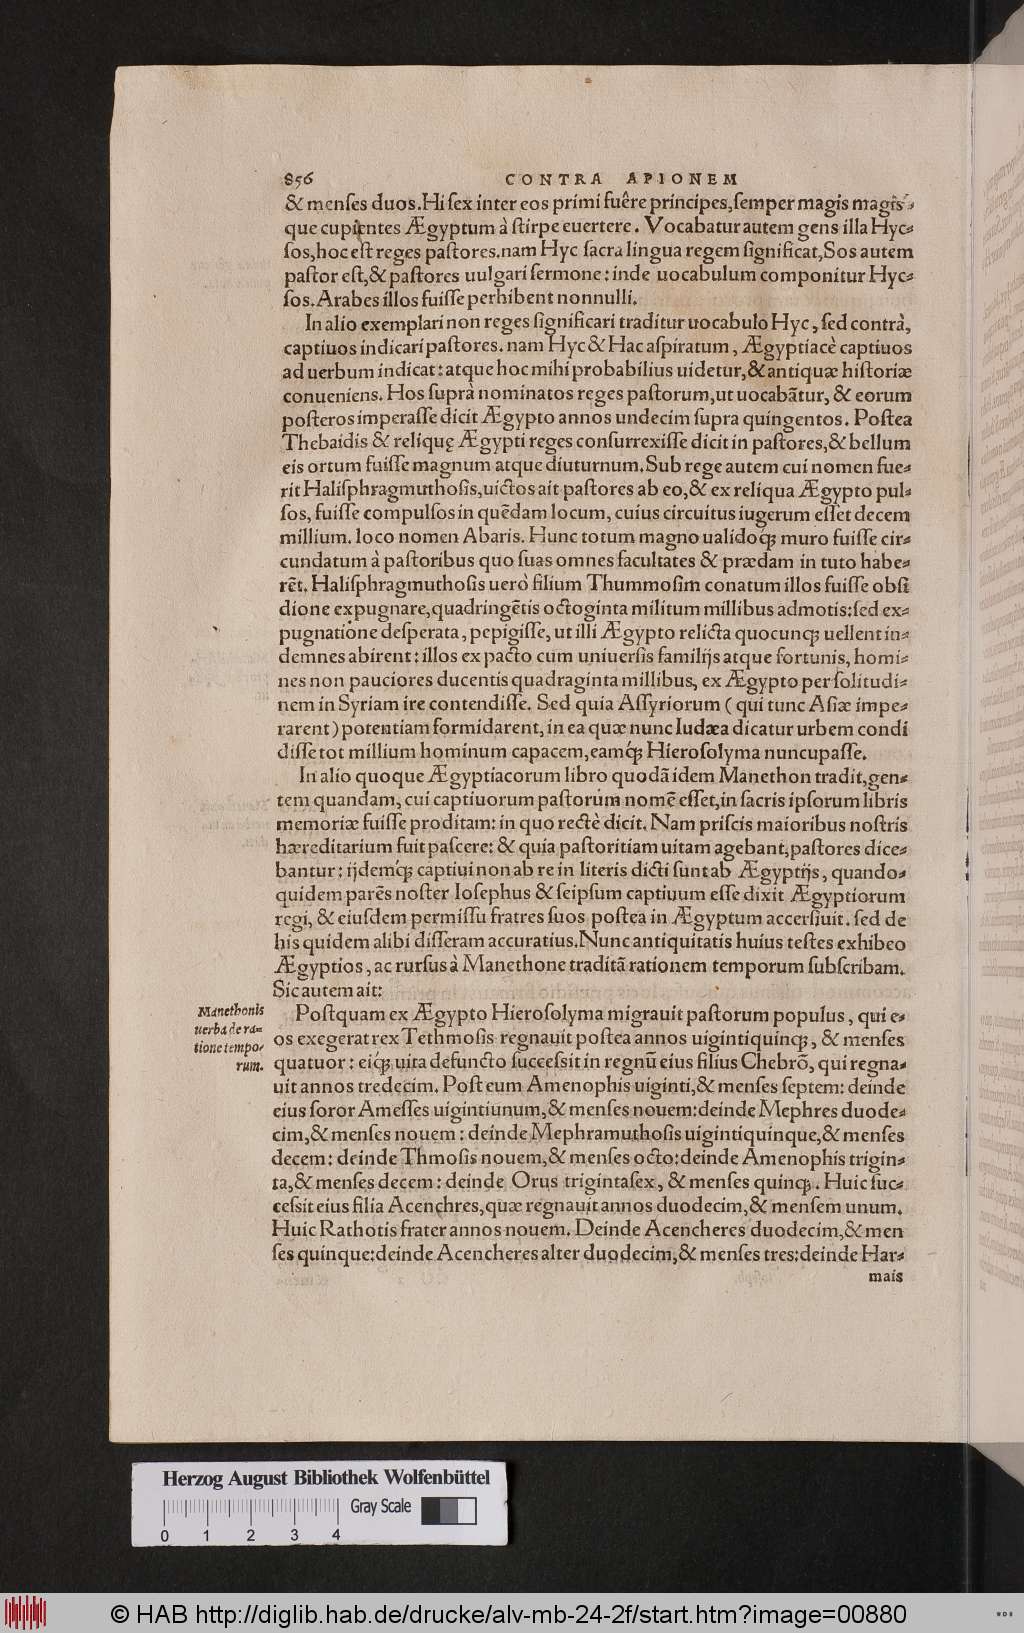 856 CONTRA APIONEM
& menſes duos. Hi ſex inter eos primi fuêre principes, ſemper magis magiſ⸗
que cupientes Ægyptum à ſtirpe euertere. Vocabatur autem gens illa Hyc⸗
ſos, hoc eſt reges paſtores. nam Hyc ſacra lingua regem ſignificat, Sos autem
paſtor eſt, & paſtores uulgari ſermone: inde uocabulum componitur Hyc⸗
ſos. Arabes illos fuiſſe perhibent nonnulli.
In alio exemplari non reges ſignificari traditur uocabulo Hyc, ſed contrà,
captiuos indicari paſtores. nam Hyc & Hac aſpiratum, Ægyptiacè captiuos
ad uerbum indicat: atque hoc mihi probabilius uidetur, & antiquæ hiſtoriæ
conueniens. Hos ſuprà nominatos reges paſtorum, ut uocabãtur, & eorum
poſteros imperaſſe dicit Ægypto annos undecim ſupra quingentos. Poſtea
Thebaidis & reliquę Ægypti reges conſurrexiſſe dicit in paſtores, & bellum
eis ortum fuiſſe magnum atque diuturnum. Sub rege autem cui nomen fue⸗
rit Haliſphragmuthoſis, uictos ait paſtores ab eo, & ex reliqua Ægypto pul⸗
ſos, fuiſſe compulſos in quẽdam locum, cuius circuitus iugerum eſſet decem
millium. loco nomen Abaris. Hunc totum magno ualidoq́; muro fuiſſe cir⸗
cundatum à paſtoribus quo ſuas omnes facultates & prædam in tuto habe⸗
rẽt. Haliſphragmuthoſis uerò filium Thummoſim conatum illos fuiſſe obſi
dione expugnare, quadringẽtis octoginta militum millibus admotis: ſed ex⸗
pugnatione deſperata, pepigiſſe, ut illi Ægypto relicta quocunq; uellent in⸗
demnes abirent: illos ex pacto cum uniuerſis familijs atque fortunis, homi⸗
nes non pauciores ducentis quadraginta millibus, ex Ægypto per ſolitudi⸗
nem in Syriam ire contendiſſe. Sed quia Aſſyriorum ( qui tunc Aſiæ impe⸗
rarent ) potentiam formidarent, in ea quæ nunc Iudæa dicatur urbem condi
diſſe tot millium hominum capacem, eamq́; Hieroſolyma nuncupaſſe.
In alio quoque Ægyptiacorum libro quodã idem Manethon tradit, gen⸗
tem quandam, cui captiuorum paſtorum nomẽ eſſet, in ſacris ipſorum libris
memoriæ fuiſſe proditam: in quo rectè dicit. Nam priſcis maioribus noſtris
hæreditarium fuit paſcere: & quia paſtoritiam uitam agebant, paſtores dice⸗
bantur: ijdemq́; captiui non ab re in literis dicti ſunt ab Ægyptijs, quando⸗
quidem parẽs noſter Ioſephus & ſeipſum captiuum eſſe dixit Ægyptiorum
regi, & eiuſdem permiſſu fratres ſuos poſtea in Ægyptum accerſiuit. ſed de
his quidem alibi diſſeram accuratius. Nunc antiquitatis huius teſtes exhibeo
Ægyptios, ac rurſus à Manethone traditã rationem temporum ſubſcribam.
Sic autem ait:
Manethonis
uerba de ra⸗
tione tempo⸗
rum.
Poſtquam ex Ægypto Hieroſolyma migrauit paſtorum populus, qui e⸗
os exegerat rex Tethmoſis regnauit poſtea annos uigintiquinq;, & menſes
quatuor: eiq́; uita defuncto ſucceſsit in regnũ eius filius Chebrõ, qui regna⸗
uit annos tredecim. Poſt eum Amenophis uiginti, & menſes ſeptem: deinde
eius ſoror Ameſſes uigintiunum, & menſes nouem: deinde Mephres duode⸗
cim, & menſes nouem: deinde Mephramuthoſis uigintiquinque, & menſes
decem: deinde Thmoſis nouem, & menſes octo: deinde Amenophis trigin⸗
ta, & menſes decem: deinde Orus trigintaſex, & menſes quinq;. Huic ſuc⸗
ceſsit eius filia Acenchres, quæ regnauit annos duodecim, & menſem unum.
Huic Rathotis frater annos nouem. Deinde Acencheres duodecim, & men
ſes quinque: deinde Acencheres alter duodecim, & menſes tres: deinde Har⸗
mais
Herzog August Bibliothek Wolfenbüttel
Gray Scale
0 1 2 3 4
© HAB http://diglib.hab.de/drucke/alv-mb-24-2f/start.htm?image=00880